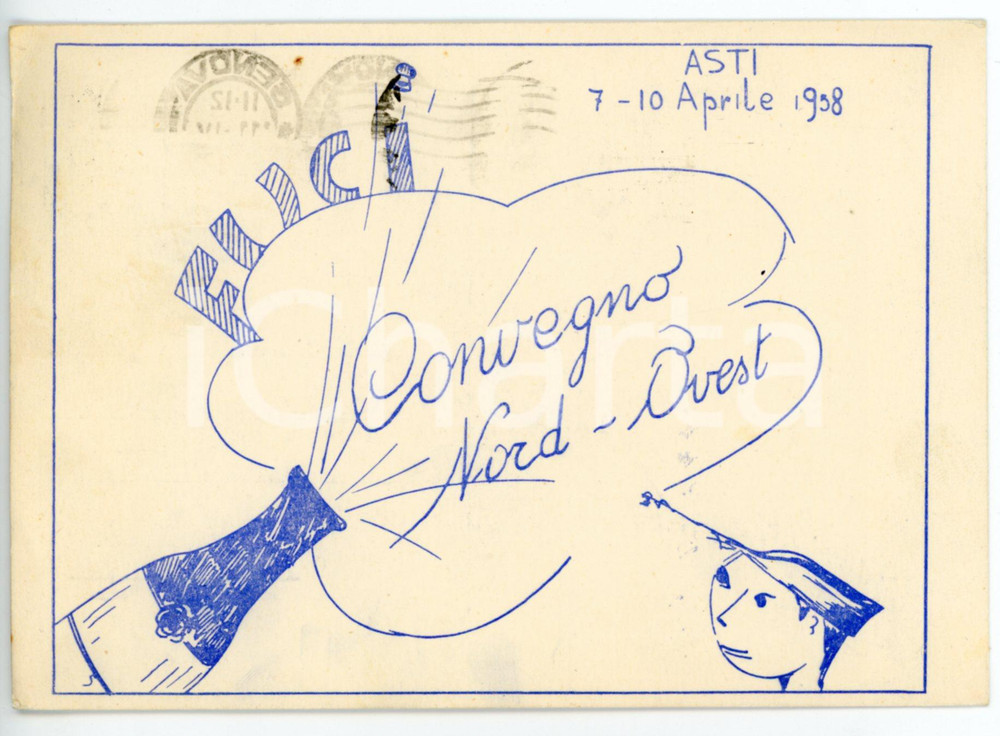 ASTI
7-10 Aprile 1958
FUCI
Convegno
Nord-Ovest
iCharta
GENOVA
11-12